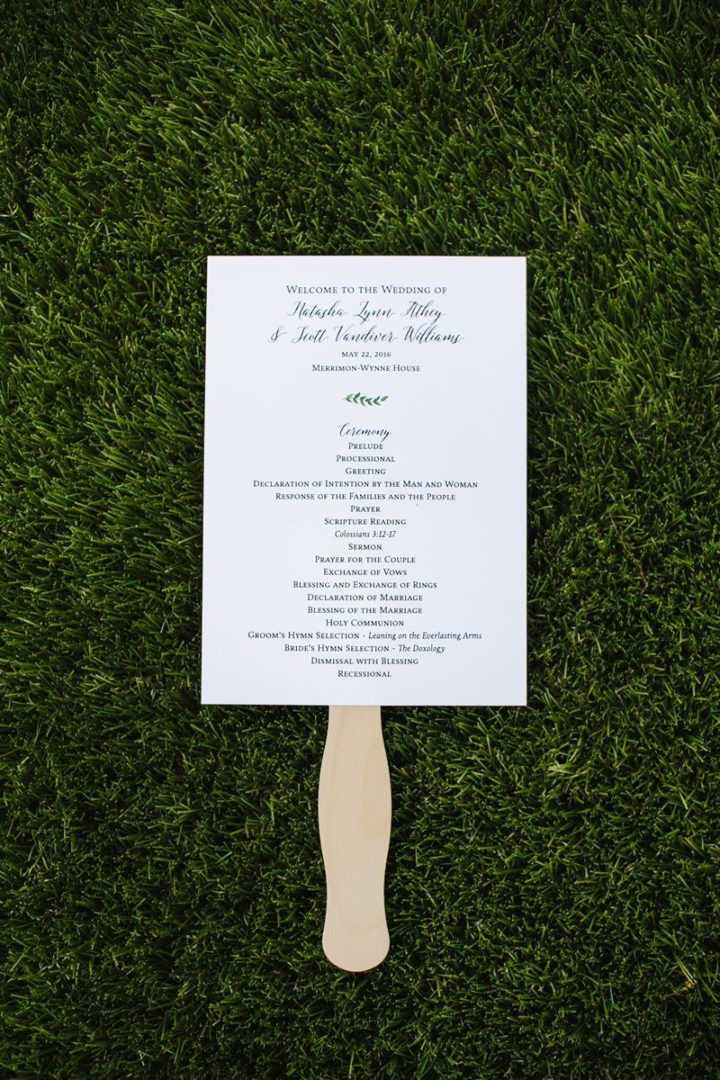 Welcome to the Wedding of
Natasha Lynn Athey
& Scott Vandiver Williams
May 22, 2016
Merrimon-Wynne House
Ceremony
Prelude
Processional
Greeting
Declaration of Intention by the Man and Woman
Response of the Families and the People
Prayer
Scripture Reading
Colossians 3:12-17
Sermon
Prayer for the Couple
Exchange of Vows
Blessing and Exchange of Rings
Declaration of Marriage
Blessing of the Marriage
Holy Communion
Groom's Hymn Selection - Leaning on the Everlasting Arms
Bride's Hymn Selection - The Doxology
Dismissal with Blessing
Recessional